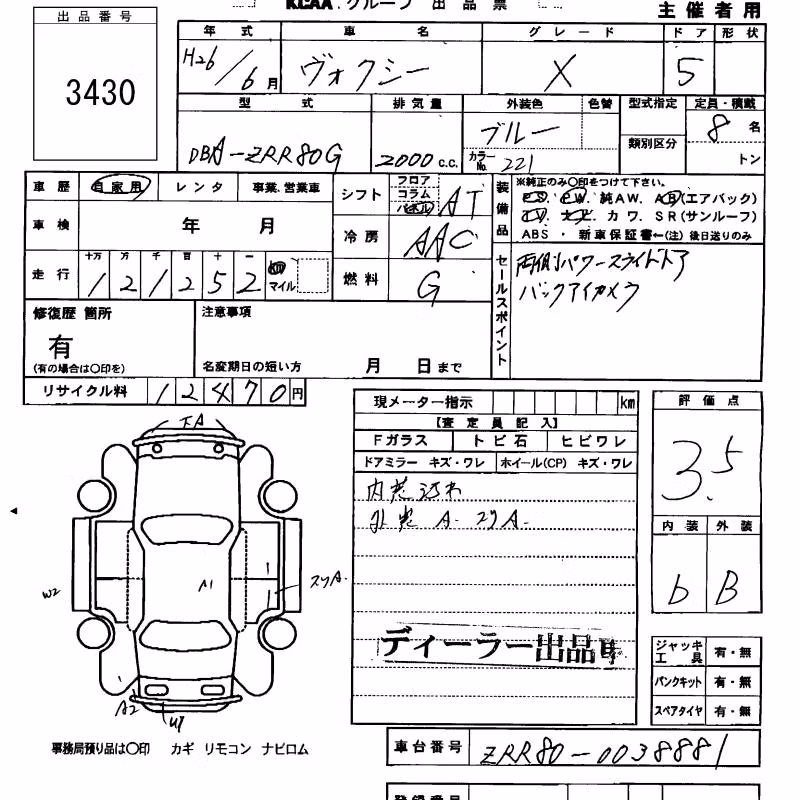 KCAA.グループ 出品票
主催者用
出品番号
3430
年式 車名 グレード ドア 形状
H26/6月 ヴォクシー X 5
型式 排気量 外装色 色替 型式指定 定員・積載
DBA-ZRR80G 2000c.c. ブルー カラーNo. 221 類別区分 8名
トン
車歴 自家用 レンタ 事業.営業車
シフト フロア コラム パネル AT
装備品 ※純正のみ〇印をつけて下さい。
P.S. P.W. 純AW. AB(エアバック)
TV. ナビ. カワ. SR(サンルーフ)
ABS・新車保証書←(注)後日送りのみ
車検 年 月
冷房 AAC
走行 十万 万 千 百 十 一
1 2 1 2 5 2 km マイル
燃料 G
セールスポイント 両側パワースライドドア
バックアイカメラ
修復歴 箇所
有
(有の場合は〇印を)
注意事項
名変期日の短い方 月 日まで
リサイクル料 12470円
現メーター指示 km
【査定員記入】
Fガラス トビ石 ヒビワレ
ドアミラー キズ・ワレ ホイール(CP) キズ・ワレ
内装 汚れ
外装 A. スリA.
ディーラー出品車
評価点
3.5
内装 外装
b B
下A
W2
A1
スリA.
A2
U1
ジャッキ工具 有・無
パンクキット 有・無
スペアタイヤ 有・無
事務局預り品は〇印 カギ リモコン ナビロム
車台番号 ZRR80-0038881
登録番号